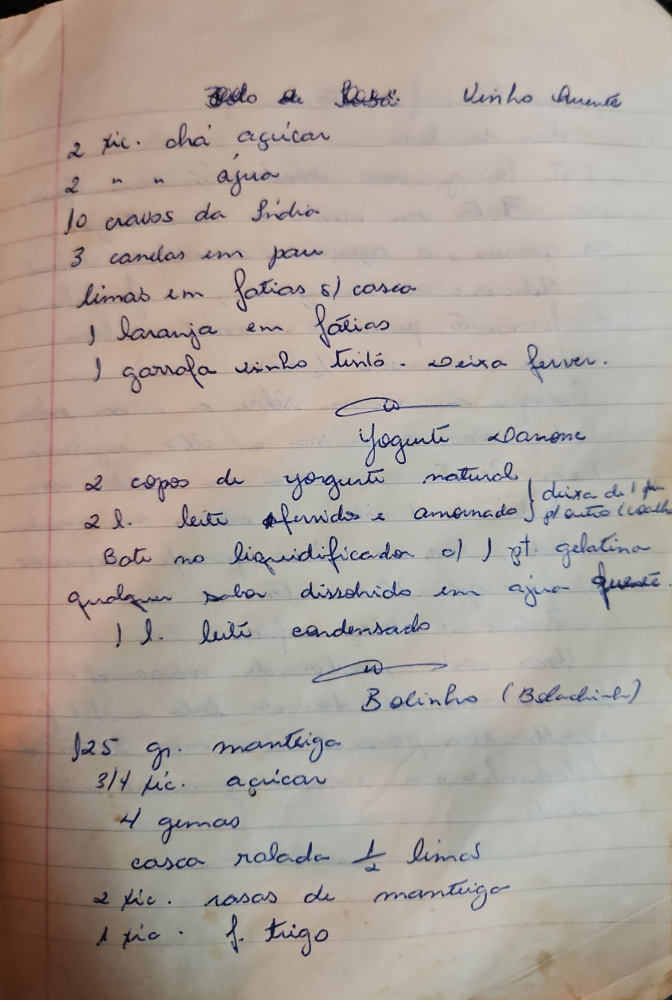 Vinho Quente
2 xic. chá açúcar
2 " " água
10 cravos da Índia
3 canelas em pau
limas em fatias s/ casca
1 laranja em fátias
1 garrafa vinho tinto. Deixa ferver.
Yogurte Danone
2 copos de yorgurte natural
2 l. leite fervidos e amornado } deixa de 1 dia
p/ outro (coalha
Bate no liquidificador c/ 1 pt. gelatina
qualquer sabor dissolvido em água quente.
1 l. leite condensado
Bolinho (Bolachinha)
125 gr. manteiga
3/4 xic. açúcar
4 gemas
casca ralada 1/2 limas
2 xic. rasas de manteiga
1 xic. f. trigo